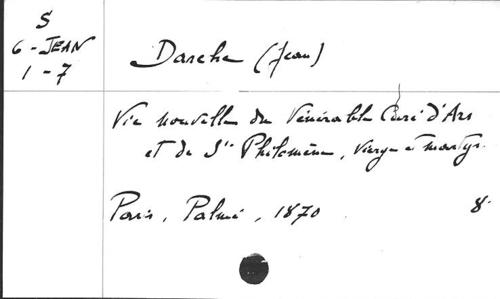 S
6 - JEAN
1 - 7
Darche (Jean)
Vie nouvelle du Vénérable Curé d'Ars
et de Ste Philomène, vierge et martyr.
Paris, Palmé, 1870 8°